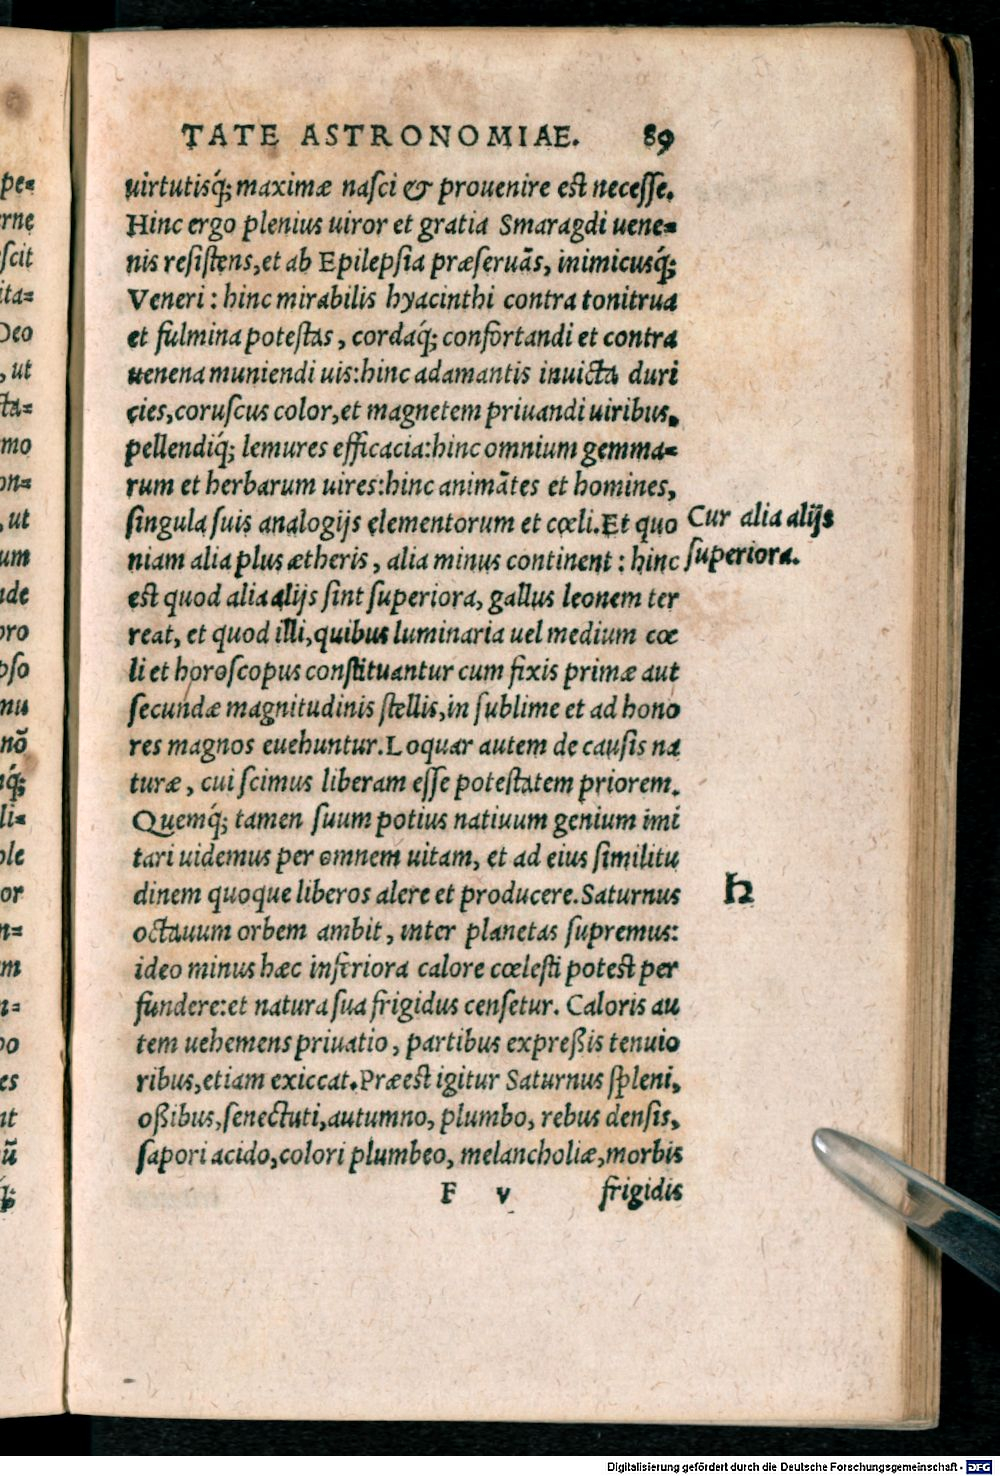 TATE ASTRONOMIAE. 89
uirtutisq́; maximæ nasci & prouenire est necesse.
Hinc ergo plenius uiror et gratia Smaragdi uene=
nis resistens, et ab Epilepsia præseruãs, inimicusq́;
Veneri : hinc mirabilis hyacinthi contra tonitrua
et fulmina potestas, cordaq́; confortandi et contra
uenena muniendi uis: hinc adamantis inuicta duri
cies, coruscus color, et magnetem priuandi uiribus,
pellendiq́; lemures efficacia: hinc omnium gemma=
rum et herbarum uires: hinc animãtes et homines,
singula suis analogijs elementorum et cœli. Et quo
niam alia plus ætheris, alia minus continent : hinc
est quod alia alijs sint superiora, gallus leonem ter
reat, et quod illi, quibus luminaria uel medium cœ
li et horoscopus constituantur cum fixis primæ aut
secundæ magnitudinis stellis, in sublime et ad hono
res magnos euehuntur. Loquar autem de causis na
turæ, cui scimus liberam esse potestatem priorem.
Quemq́; tamen suum potius natiuum genium imi
tari uidemus per omnem uitam, et ad eius similitu
dinem quoque liberos alere et producere. Saturnus
octauum orbem ambit, inter planetas supremus:
ideo minus hæc inferiora calore cœlesti potest per
fundere: et natura sua frigidus censetur. Caloris au
tem uehemens priuatio, partibus expreßis tenuio
ribus, etiam exiccat. Præest igitur Saturnus spleni,
oßibus, senectuti, autumno, plumbo, rebus densis,
sapori acido, colori plumbeo, melancholiæ, morbis
F v frigidis
Cur alia alijs
superiora.
♄
pe=
rnę
scit
ita=
Deo
, ut
sta=
mo
on=
, ut
um
ude
pro
pso
nu
nõ
q́;
li=
ple
or
n=
m
n=
po
es
nt
ũ
Digitalisierung gefördert durch die Deutsche Forschungsgemeinschaft - DFG